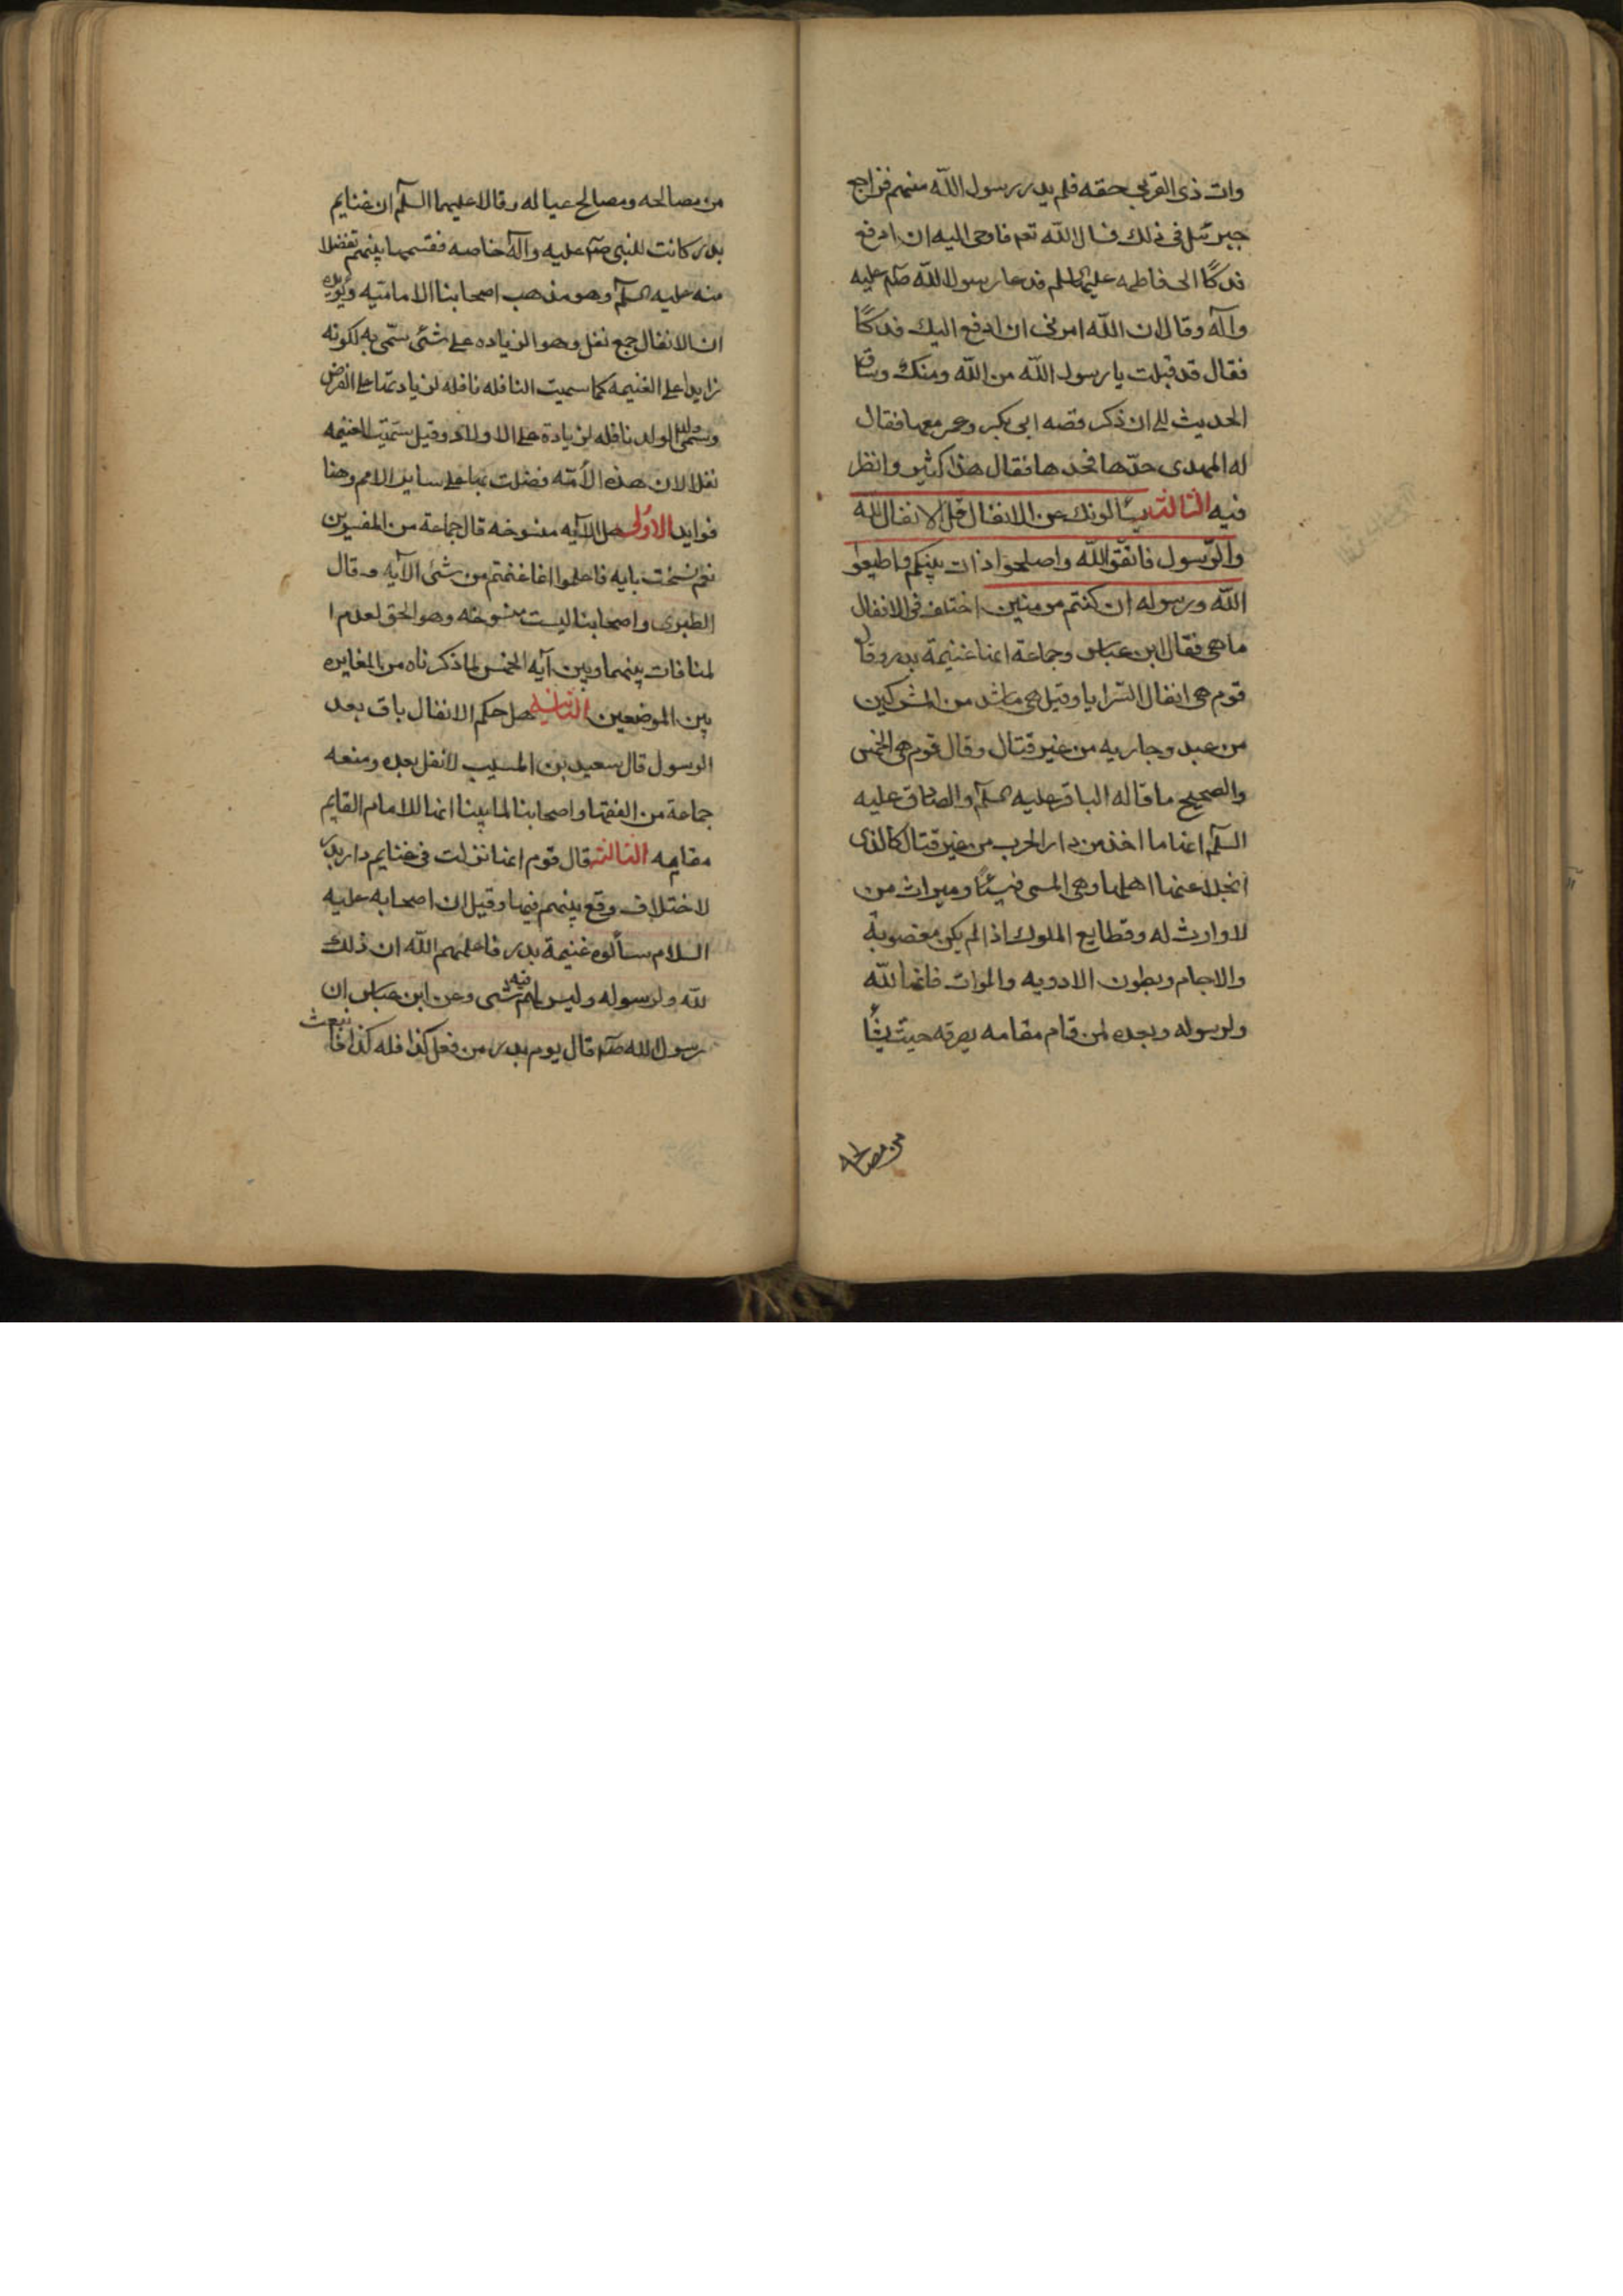 وات ذى القربى حقه فلم يدر رسول الله منهم فراجع
جبرئيل فى ذلك فسال الله تعم فاوحى اليه ان ادفع
فدكًا الى فاطمه عليها السلم فدعا رسول الله صلم عليه
وآله وقال ان الله امرنى ان ادفع اليك فدكًا
فقال قد قبلت يا رسول الله من الله ومنك وساق
الحديث الى ان ذكر قصه ابى بكر وعمر معها فقال
له المهدى حدّها فحدها فقال هذا كثير وانظر
فيه الثالثه يسألونك عن الانفال قل الانفال لله
والرّسول فاتقوا الله واصلحوا ذات بينكم واطيعوا
الله ورسوله ان كنتم مومنين اختلف فى الانفال
ما هى فقال ابن عباس وجماعة انها غنيمة بدر وقال
قوم هى انفال السّرايا وقيل هى ما شد من المشركين
من عبد وجاريه من غير قتال وقال قوم هى الخمس
والصحيح ما قاله الباقر عليه السلم والصادق عليه
السلم انها ما اخذ من دار الحرب من غير قتال كالذى
انجلا عنها اهلها وهى المسمى فيئًا وميراث من
لا وارث له وقطايع الملوك اذا لم يكن مغصوبة
والاجام وبطون الادويه والموات فانها لله
ولرسوله وبعده لمن قام مقامه يصرفه حيث يشأ
من مصالحه
من مصالحه ومصالح عياله وقالا عليهما السلم ان غنايم
بدر كانت للنبى صلم عليه وآله خاصه فقسمها بينهم تفضلا
منه عليه السلم وهو مذهب اصحابنا الاماميّه ويؤيده
ان الانفال جمع نفل وهو الزياده على شئ سمّى به لكونه
زايدا على الغنيمه كما سميت النافله نافله لزيادتها على الفرض
وسمّى ولد الولد نافله لزيادة على الاولاد وقيل سمّيت الغنيمه
نفلا لان هذه الأمّه فضلت بها على ساير الامم وهنا
فوايد الاولى هل الآيه منسوخه قال جماعة من المفسرين
نعم نسخت بايه فاعلموا انما غنمتم من شئ الآيه وقال
الطبرى واصحابنا ليست منسوخه وهو الحق لعدم ا
لمنافات بينهما وبين آيه الخمس لما ذكرناه من المغايره
بين الموضعين الثانيه هل حكم الانفال باق بعد
الرسول قال سعيد بن المسيب لا نفل بعده ومنعه
جماعة من الفقها واصحابنا لما بينا انها للامام القايم
مقامه الثالثه قال قوم انها نزلت فى غنايم دار بدر
لاختلاف وقع بينهم فيها وقيل ان اصحابه عليه
السلام سألوه غنيمة بدر فاعلمهم الله ان ذلك
لله ولرسوله وليس لهم فيه شى وعن ابن عباس ان
رسول الله صلم قال يوم بدر من فعل كذا فله كذا فانبعث